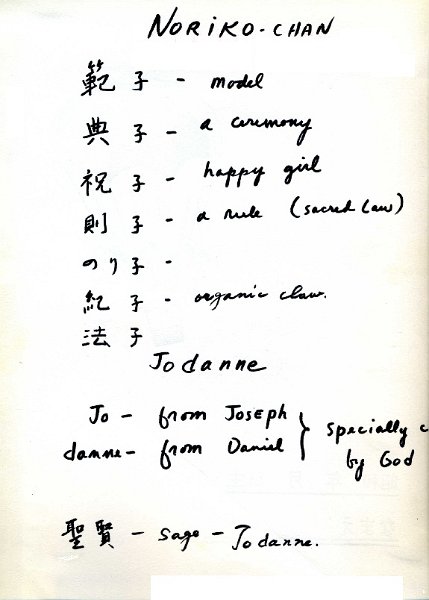 NORIKO-CHAN
範子 - model
典子 - a ceremony
祝子 - happy girl
則子 - a rule (sacred law)
のり子 -
紀子 - organic claw.
法子
Jodanne
Jo - from Joseph
danne - from Daniel
} specially c
by God
聖賢 - sage - Jodanne.